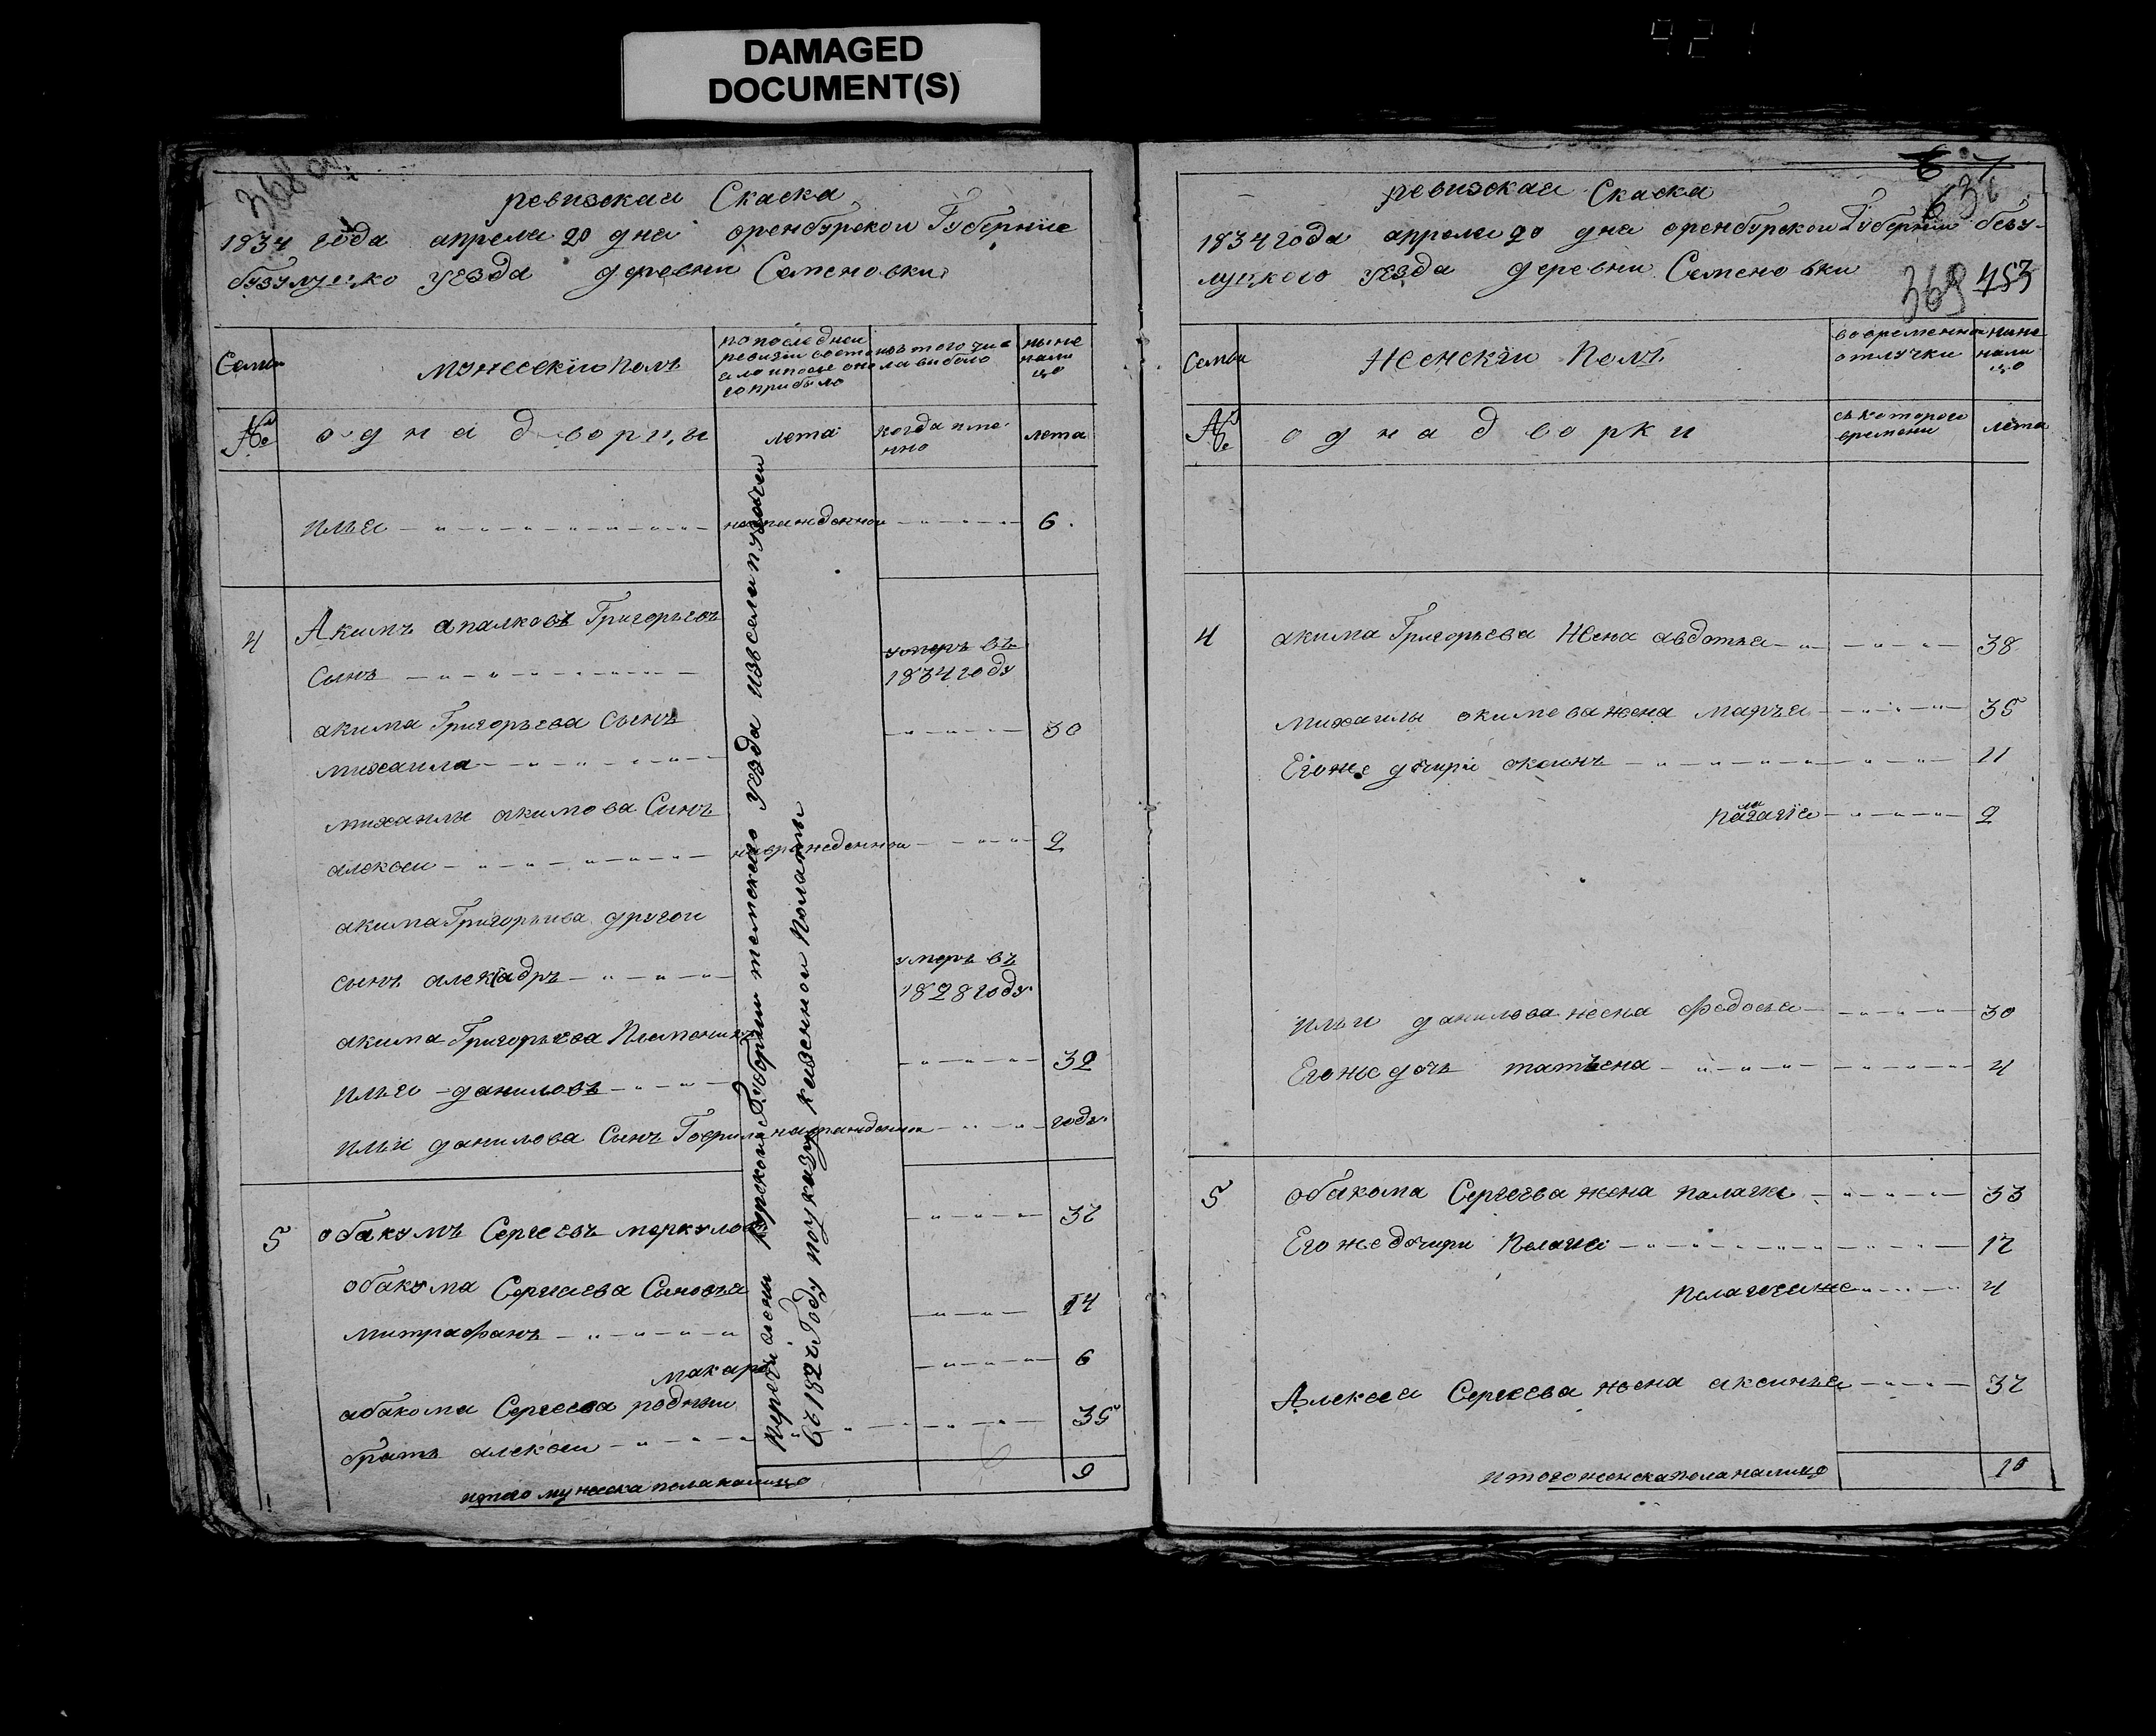 DAMAGED
DOCUMENT(S)
368 об
ревизская Скаска
1834 года апреля 20 дня оренбурской Губернiе
бузулуцко уезда деревни Семеновки
Семьи
мужескiи полъ
по последней
ревизии состо
яло и после оно
го прибыло
изъ того чис
ла выбыло
ныне
нали
цо
№
о д н а д в о р ц ы
лета
когда име
нно
лета
илья
новражденнои
6
4
Акимъ апалковъ Григорьевъ
Сынъ
умеръ въ
1834 году
акима Григорьева Сынъ
михаила
30
михаилы акимова Сынъ
алексеи
новражденнои
2
акима Григорьива другои
сынъ алексадръ
умеръ въ
1828 году
акима Григорьева Племеникъ
илья даниловъ
32
ильи данилова Сынъ Гаврила новражденнои
году
5
обакумъ Сергеевъ меркулов
37
обакума Сергаева Сыновья
митрафанъ
14
макаръ
6
абакома Сергеева роднои
братъ алексеи
35
итого мужеска пола налицо
9
Перечислены Курскои Губернии темскаго уезда изъ села пузачеи
съ 1827 Году по указу казеннои Полаты
6 7
ревизская Скаска
1834 года аппреля 20 дня оренбурскои Губернии бозу-
луцкого уезда деревни Семеновки
369 453
Семьи
Женскiи Полъ
во временнои
отлучки
ныне
нали
цо
№
о д н а д в о р к и
съ которого
времени
лета
4
акима Григорьева Жена авдотья
38
михаилы окимова жена марья
35
Егоже дочири оксинъ
11
палагiя
2
ильи данилова жена федосья
30
Егоже дочь татьена
4
5
обакома Сергеева жена палагия
33
Егоже дочири Пелагея
17
пелагеяже
4
Алексея Сергеева жена аксинья
37
итого женска пола налицо
10